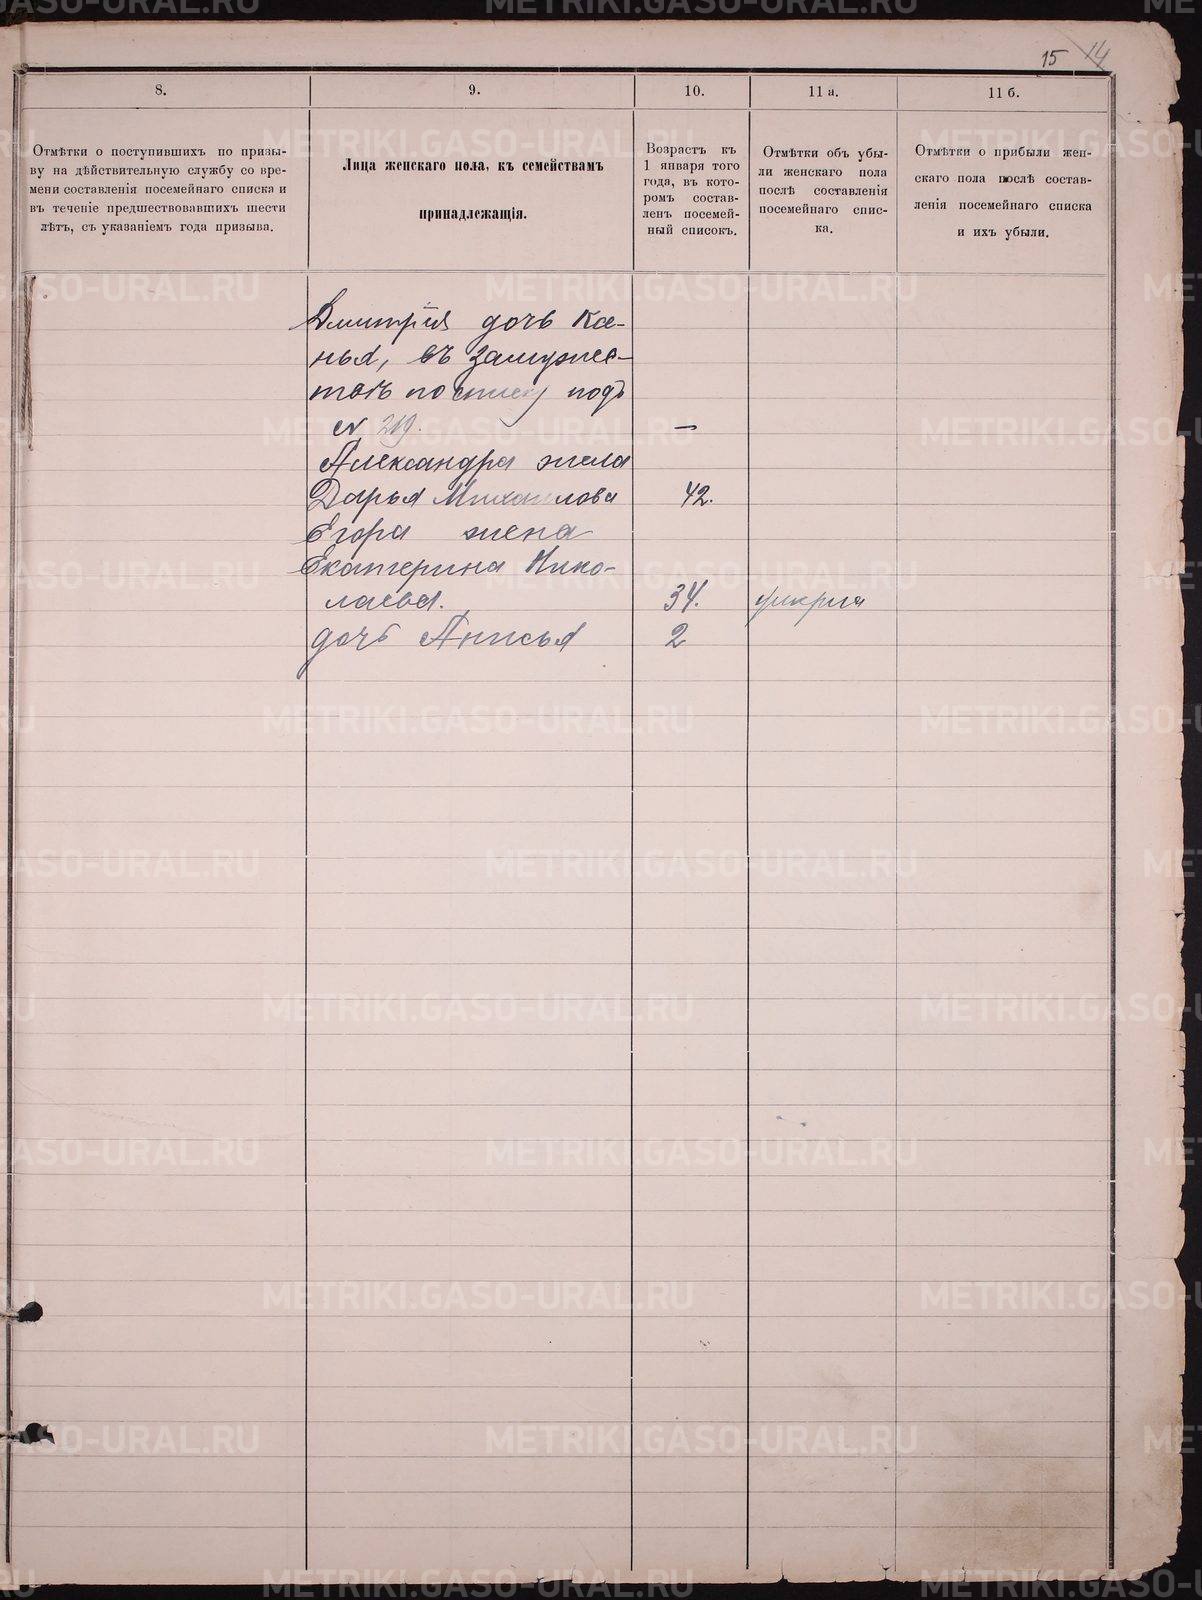 15 14
8.
9.
10.
11 а.
11 б.
Отмѣтки о поступившихъ по призы-
ву на дѣйствительную службу со вре-
мени составленія посемейнаго списка и
въ теченіе предшествовавшихъ шести
лѣтъ, съ указаніемъ года призыва.
Лица женскаго пола, къ семействамъ
принадлежащія.
Возрастъ къ
1 января того
года, въ кото-
ромъ состав-
ленъ посемей-
ный списокъ.
Отмѣтки объ убы-
ли женскаго пола
послѣ составленія
посемейнаго спис-
ка.
Отмѣтки о прибыли жен-
скаго пола послѣ состав-
ленія посемейнаго списка
и ихъ убыли.
Дмитрія дочь Ксе-
нья, въ замужес-
твѣ по списку подъ
№ 219. —
Александра жена
Дарья Михайлова 42.
Егора жена
Екатерина Нико-
лаева. 34. умерла
дочь Анисья 2
METRIKI.GASO-URAL.RU